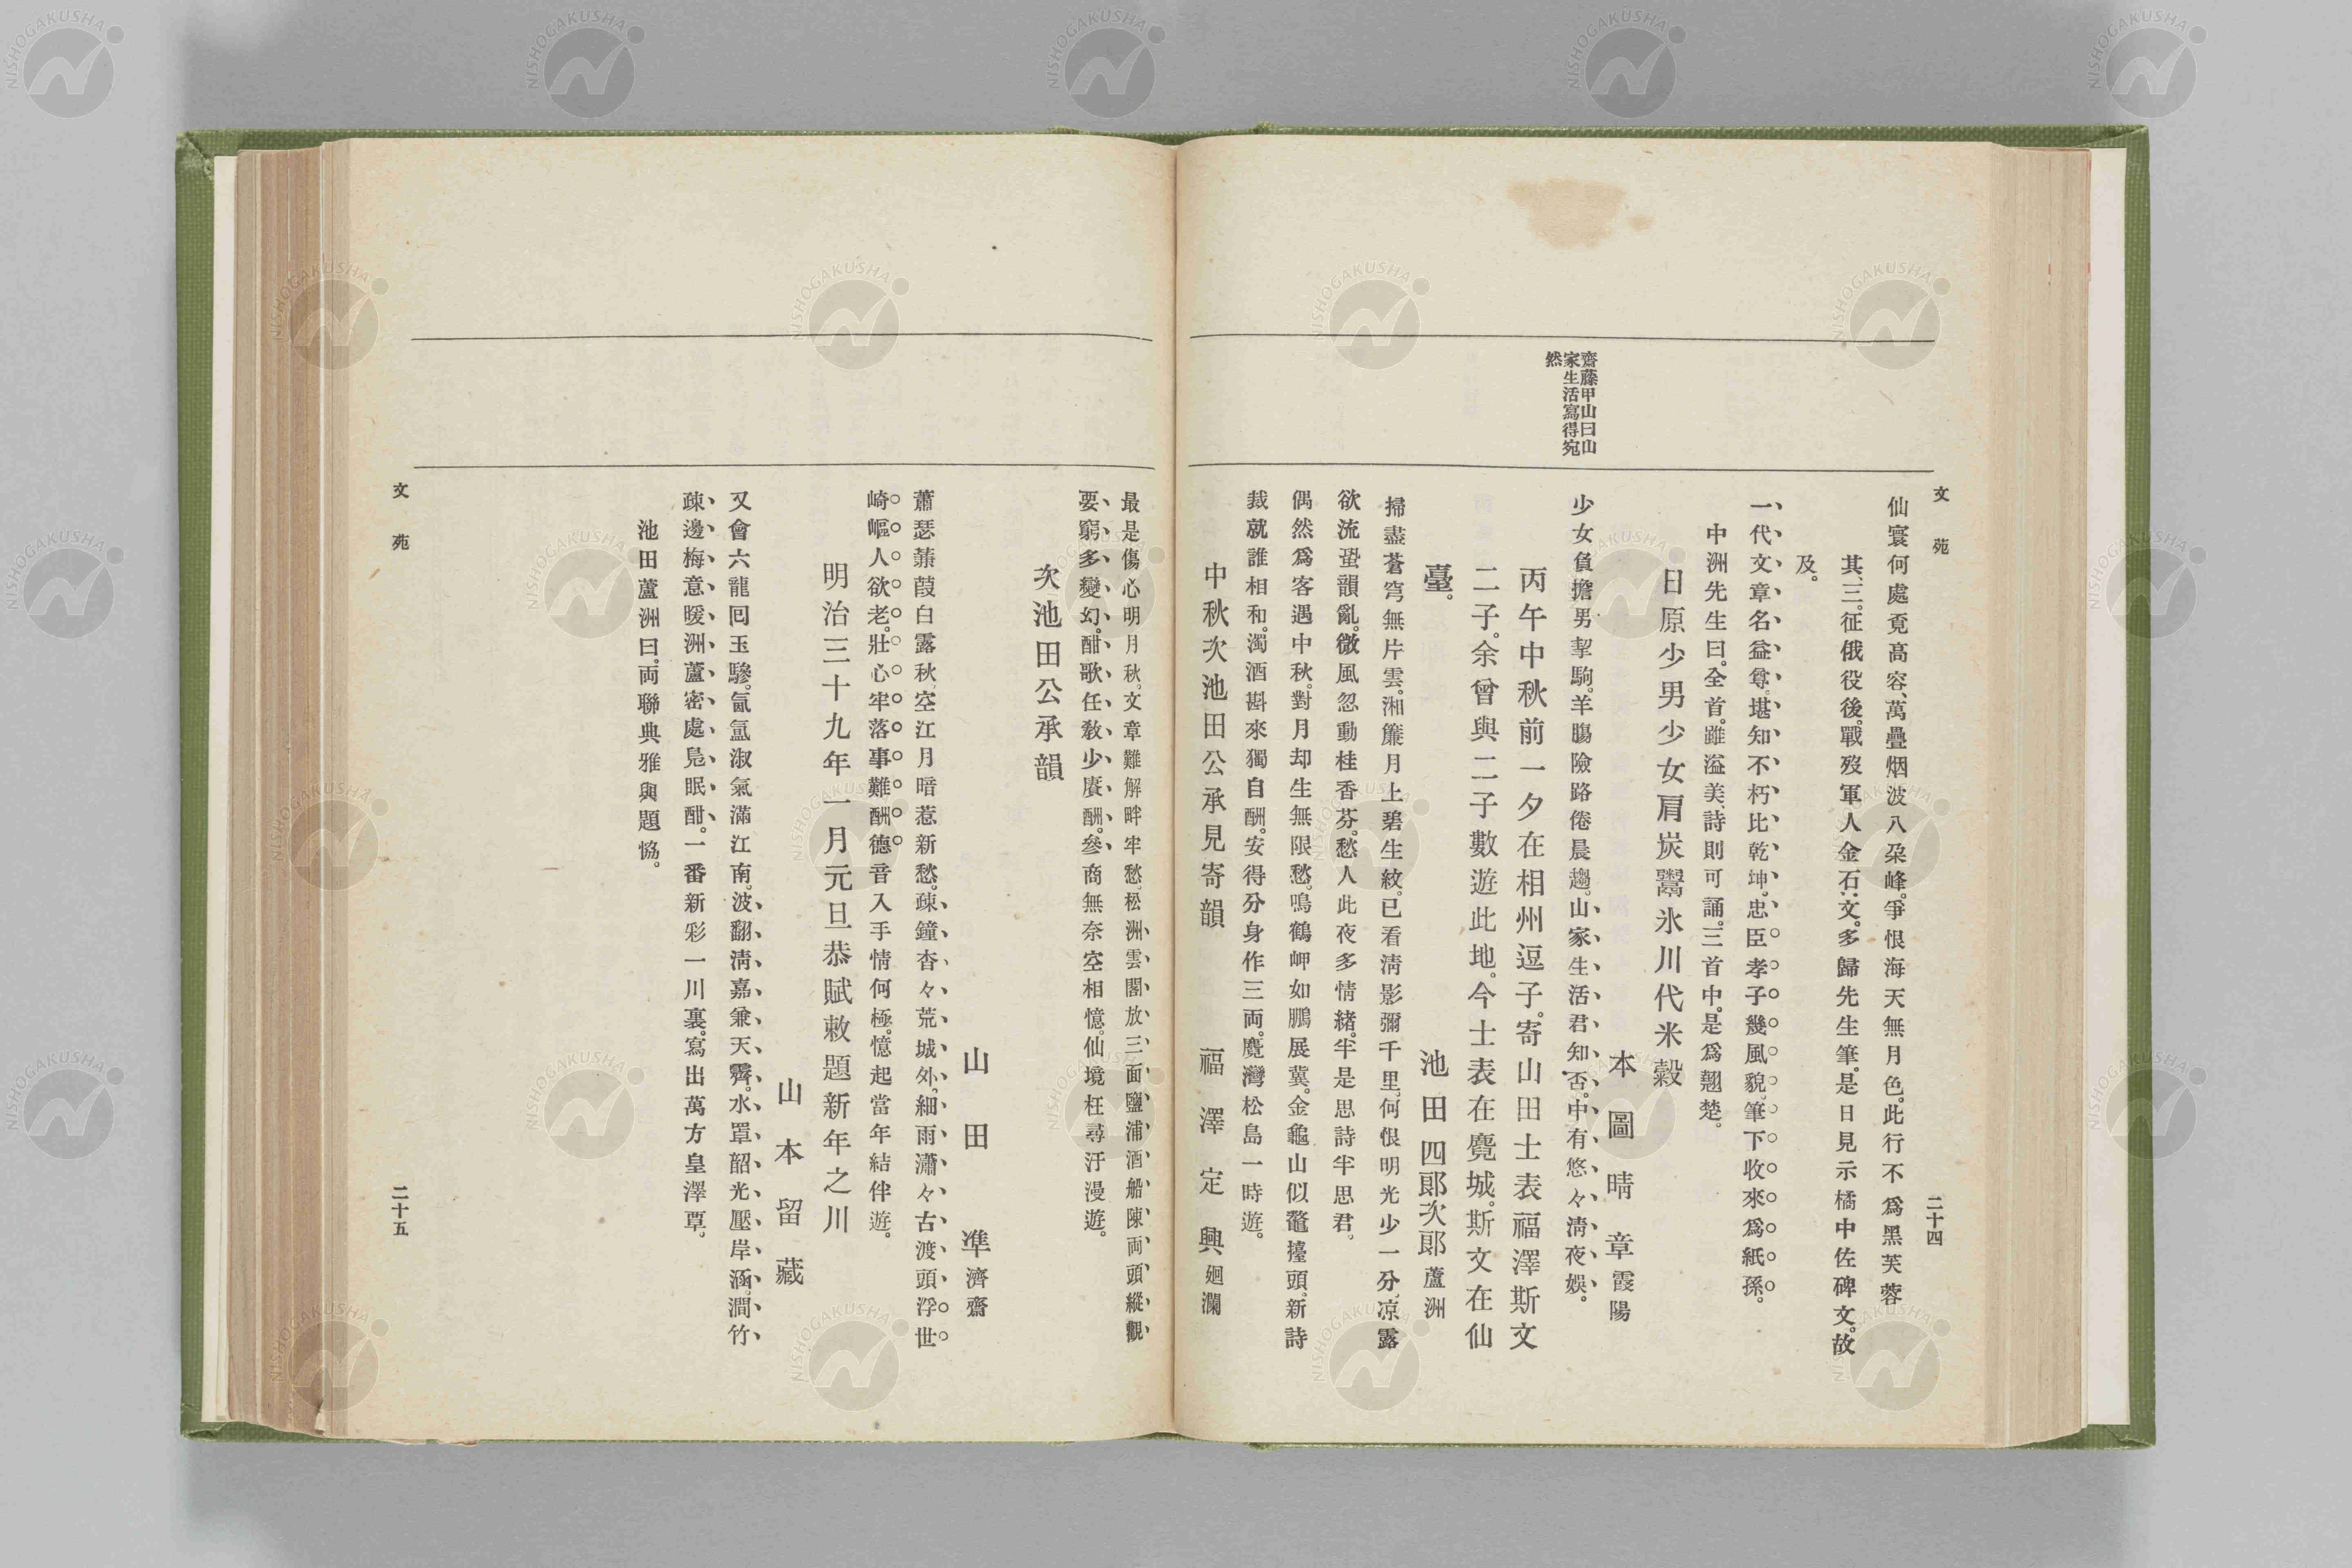 文苑
二十四
仙寰何處覓高容、萬疊烟波八朶峰。爭恨海天無月色。此行不爲黑芙蓉
其三。征俄役後。戰歿軍人金石文。多歸先生筆。是日見示橘中佐碑文。故
及。
一代文章名益尊。堪知不朽比乾坤。忠臣孝子幾風貌。筆下收來爲紙孫。
中洲先生曰。全首。雖溢美、詩則可誦。三首中。是爲翹楚。
日原少男少女肩炭鬻氷川代米穀
本圖晴章霞陽
齋藤甲山曰山
家生活寫得宛
然
少女負擔男挈駒。羊腸險路倦晨趨。山家生活君知否。中有悠々淸夜娛。
丙午中秋前一夕在相州逗子。寄山田士表福澤斯文
二子。余曾與二子數遊此地。今士表在麑城。斯文在仙
臺。
池田四郞次郞蘆洲
掃盡蒼穹無片雲。湘簾月上碧生紋。已看淸影彌千里。何恨明光少一分。凉露
欲流蛩韻亂。微風忽動桂香芬。愁人此夜多情緒。半是思詩半思君。
偶然爲客遇中秋。對月却生無限愁。鳴鶴岬如鵬展翼。金龜山似鼇擡頭。新詩
裁就誰相和。濁酒斟來獨自酬。安得分身作三兩。麑灣松島一時遊。
中秋次池田公承見寄韻
福澤定興廻瀾
最是傷心明月秋。文章難解畔牢愁。松洲雲閣放三面。鹽浦酒船陳兩頭。縱觀
要窮多變幻。酣歌任敎少賡酬。參商無奈空相憶。仙境枉尋汗漫遊。
次池田公承韻
山田準濟齋
蕭瑟蒹葭白露秋。空江月暗惹新愁。疎鐘杳々荒城外。細雨瀟々古渡頭。浮世
崎嶇人欲老。壯心牢落事難酬。德音入手情何極。憶起當年結伴遊。
明治三十九年一月元旦恭賦敕題新年之川
山本留藏
又會六龍囘玉驂。氤氳淑氣滿江南。波翻淸嘉兼天霽。水罩韶光壓岸涵。澗竹
疎邊梅意暖。洲蘆密處鳧眠酣。一番新彩一川裏。寫出萬方皇澤覃。
池田蘆洲曰。兩聯典雅與題恊。
文苑
二十五